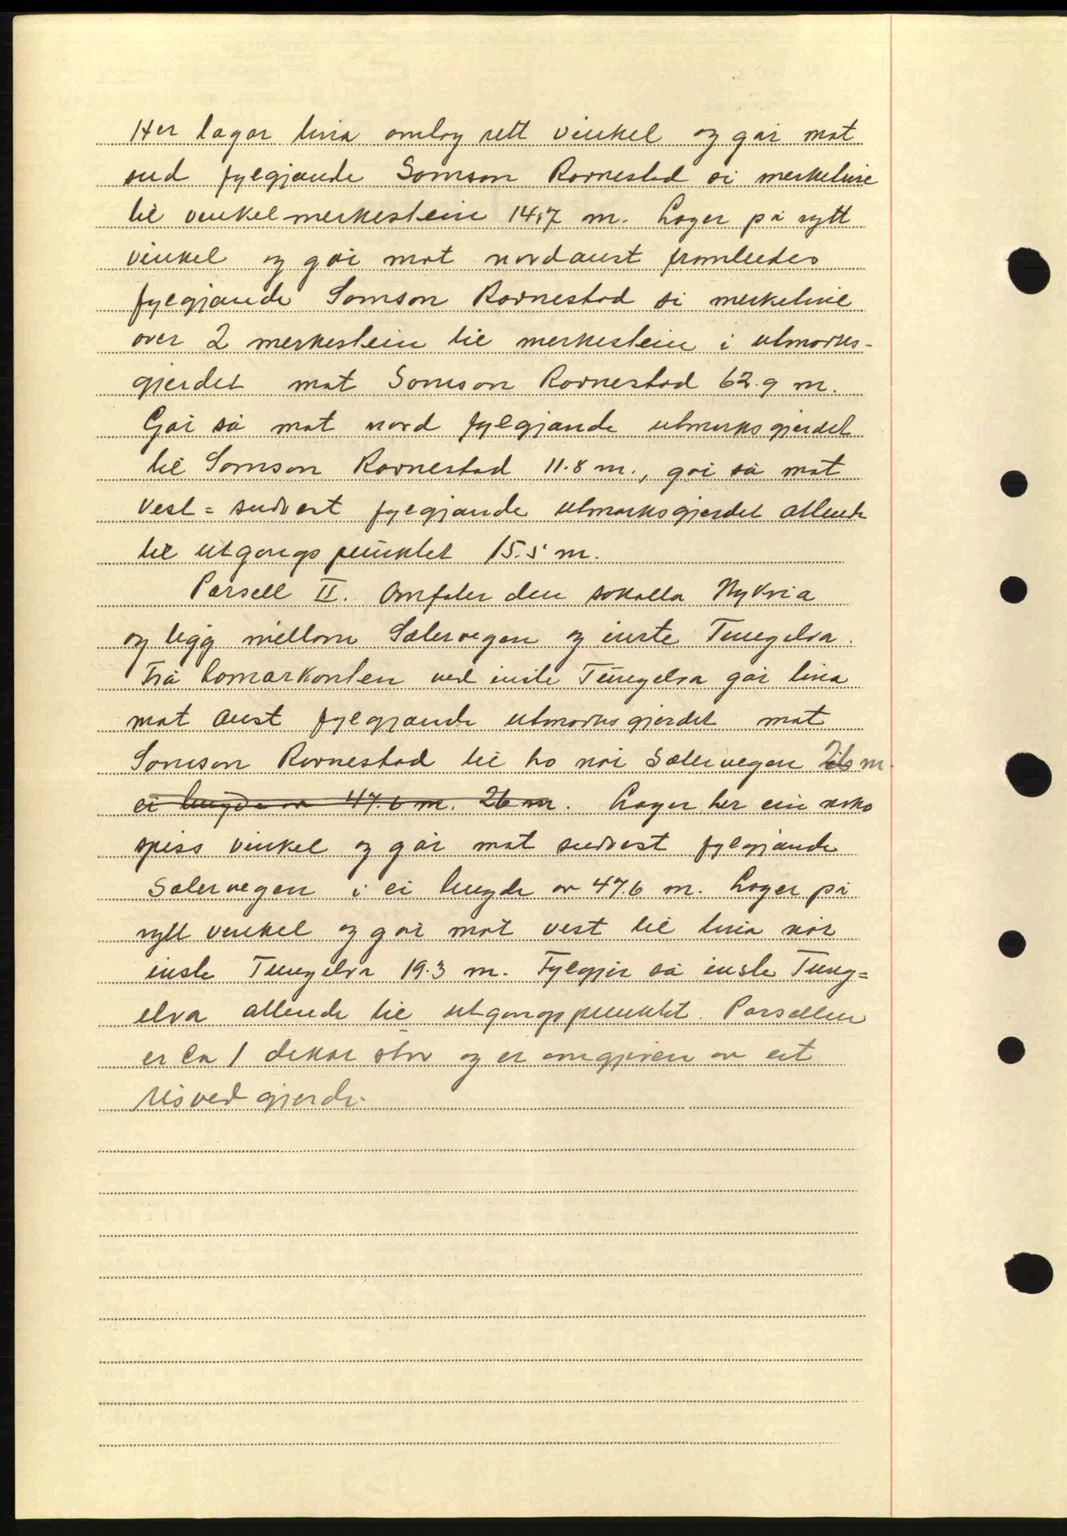 Her lagar lina omlag rett vinkel og går mot
sud fylgjande Samson Ravnestad si merkeline
til vinkelmerkestein 14,7 m. Lager på nytt
vinkel og går mot nordaust framleides
fylgjande Samson Ravnestad si merkeline
over 2 merkestein til merkestein i utmarks-
gjerdet mot Samson Ravnestad 62.9 m.
Går så mot nord fylgjande utmarksgjerdet
til Samson Ravnestad 11.8 m., går så mot
vest = sudvest fylgjande utmarksgjerdet attende
til utgangspunktet 15.5 m.
Parsell II. Omfater den sokalla Nykvia
og ligg millom Sætervegen og inste Tungelva.
Frå Lomarkanten ved inste Tungelva går lina
mot aust fylgjande utmarksgjerdet mot
Samson Ravnestad til ho når Sætervegen 26 m.
ei lengde av 47.6 m. 26 m. Lagar her ein noko
spiss vinkel og går mot sudvest fylgjande
Sætervegen i ei lengde av 47.6 m. Lager på
nytt vinkel og går mot vest til lina når
inste Tungelva 19.3 m. Fylgjer så inste Tung=
elva attende til utgangspunktet. Parsellen
er ca 1 dekar stor og er omgjeven av eit
risved gjerde.